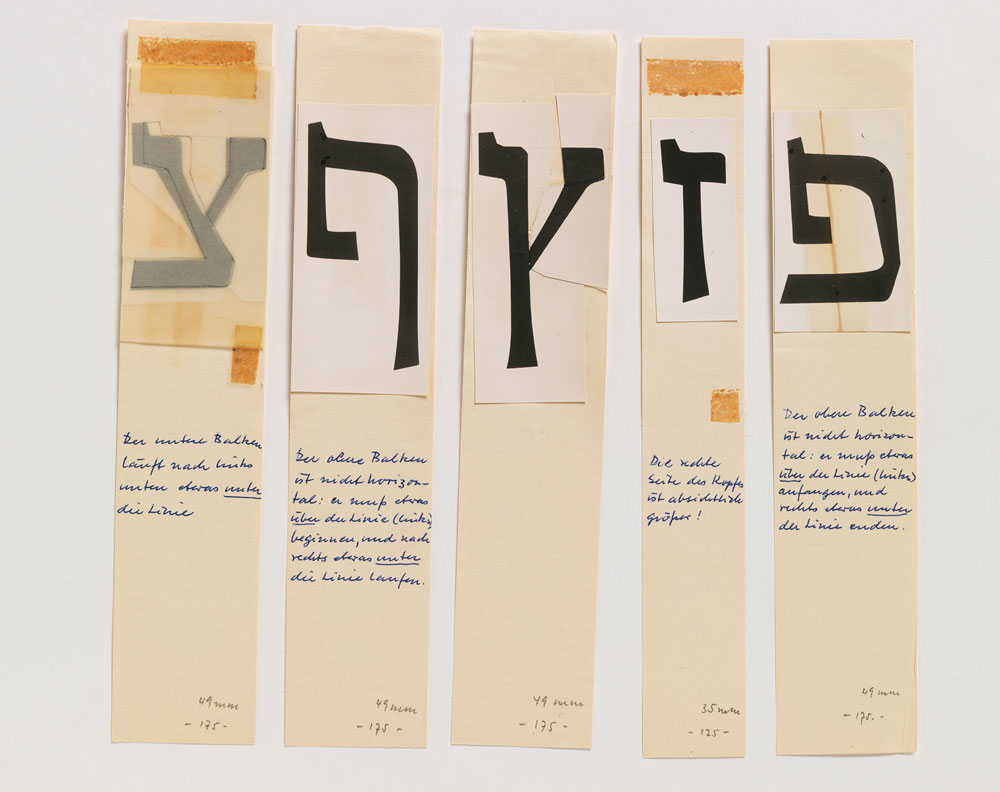 צ
Der untere Balken
läuft nach links
unten etwas unter
die Linie
49 mm
- 175 -
ף
Der obere Balken
ist nicht horizon-
tal: er muß etwas
über der Linie (links)
beginnen, und nach
rechts etwas unter
die Linie laufen.
49 mm
- 175 -
ץ
49 mm
- 175 -
ז
Die rechte
Seite des Kopfes
ist absichtlich
größer!
35 mm
- 125 -
פ
Der obere Balken
ist nicht horizon-
tal: er muß etwas
über der Linie (links)
anfangen, und
rechts etwas unter
der Linie enden.
49 mm
- 175. -